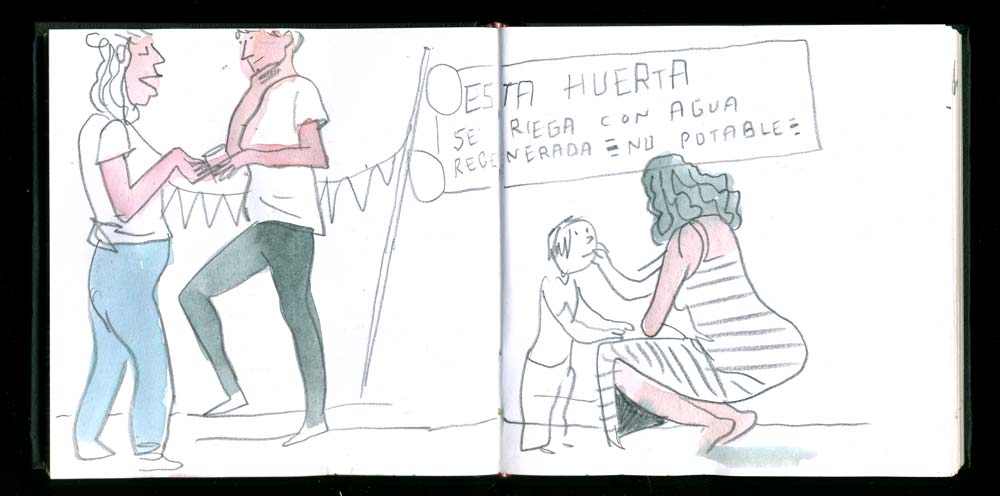 ESTA HUERTA
SE RIEGA CON AGUA
REGENERADA =NO POTABLE=